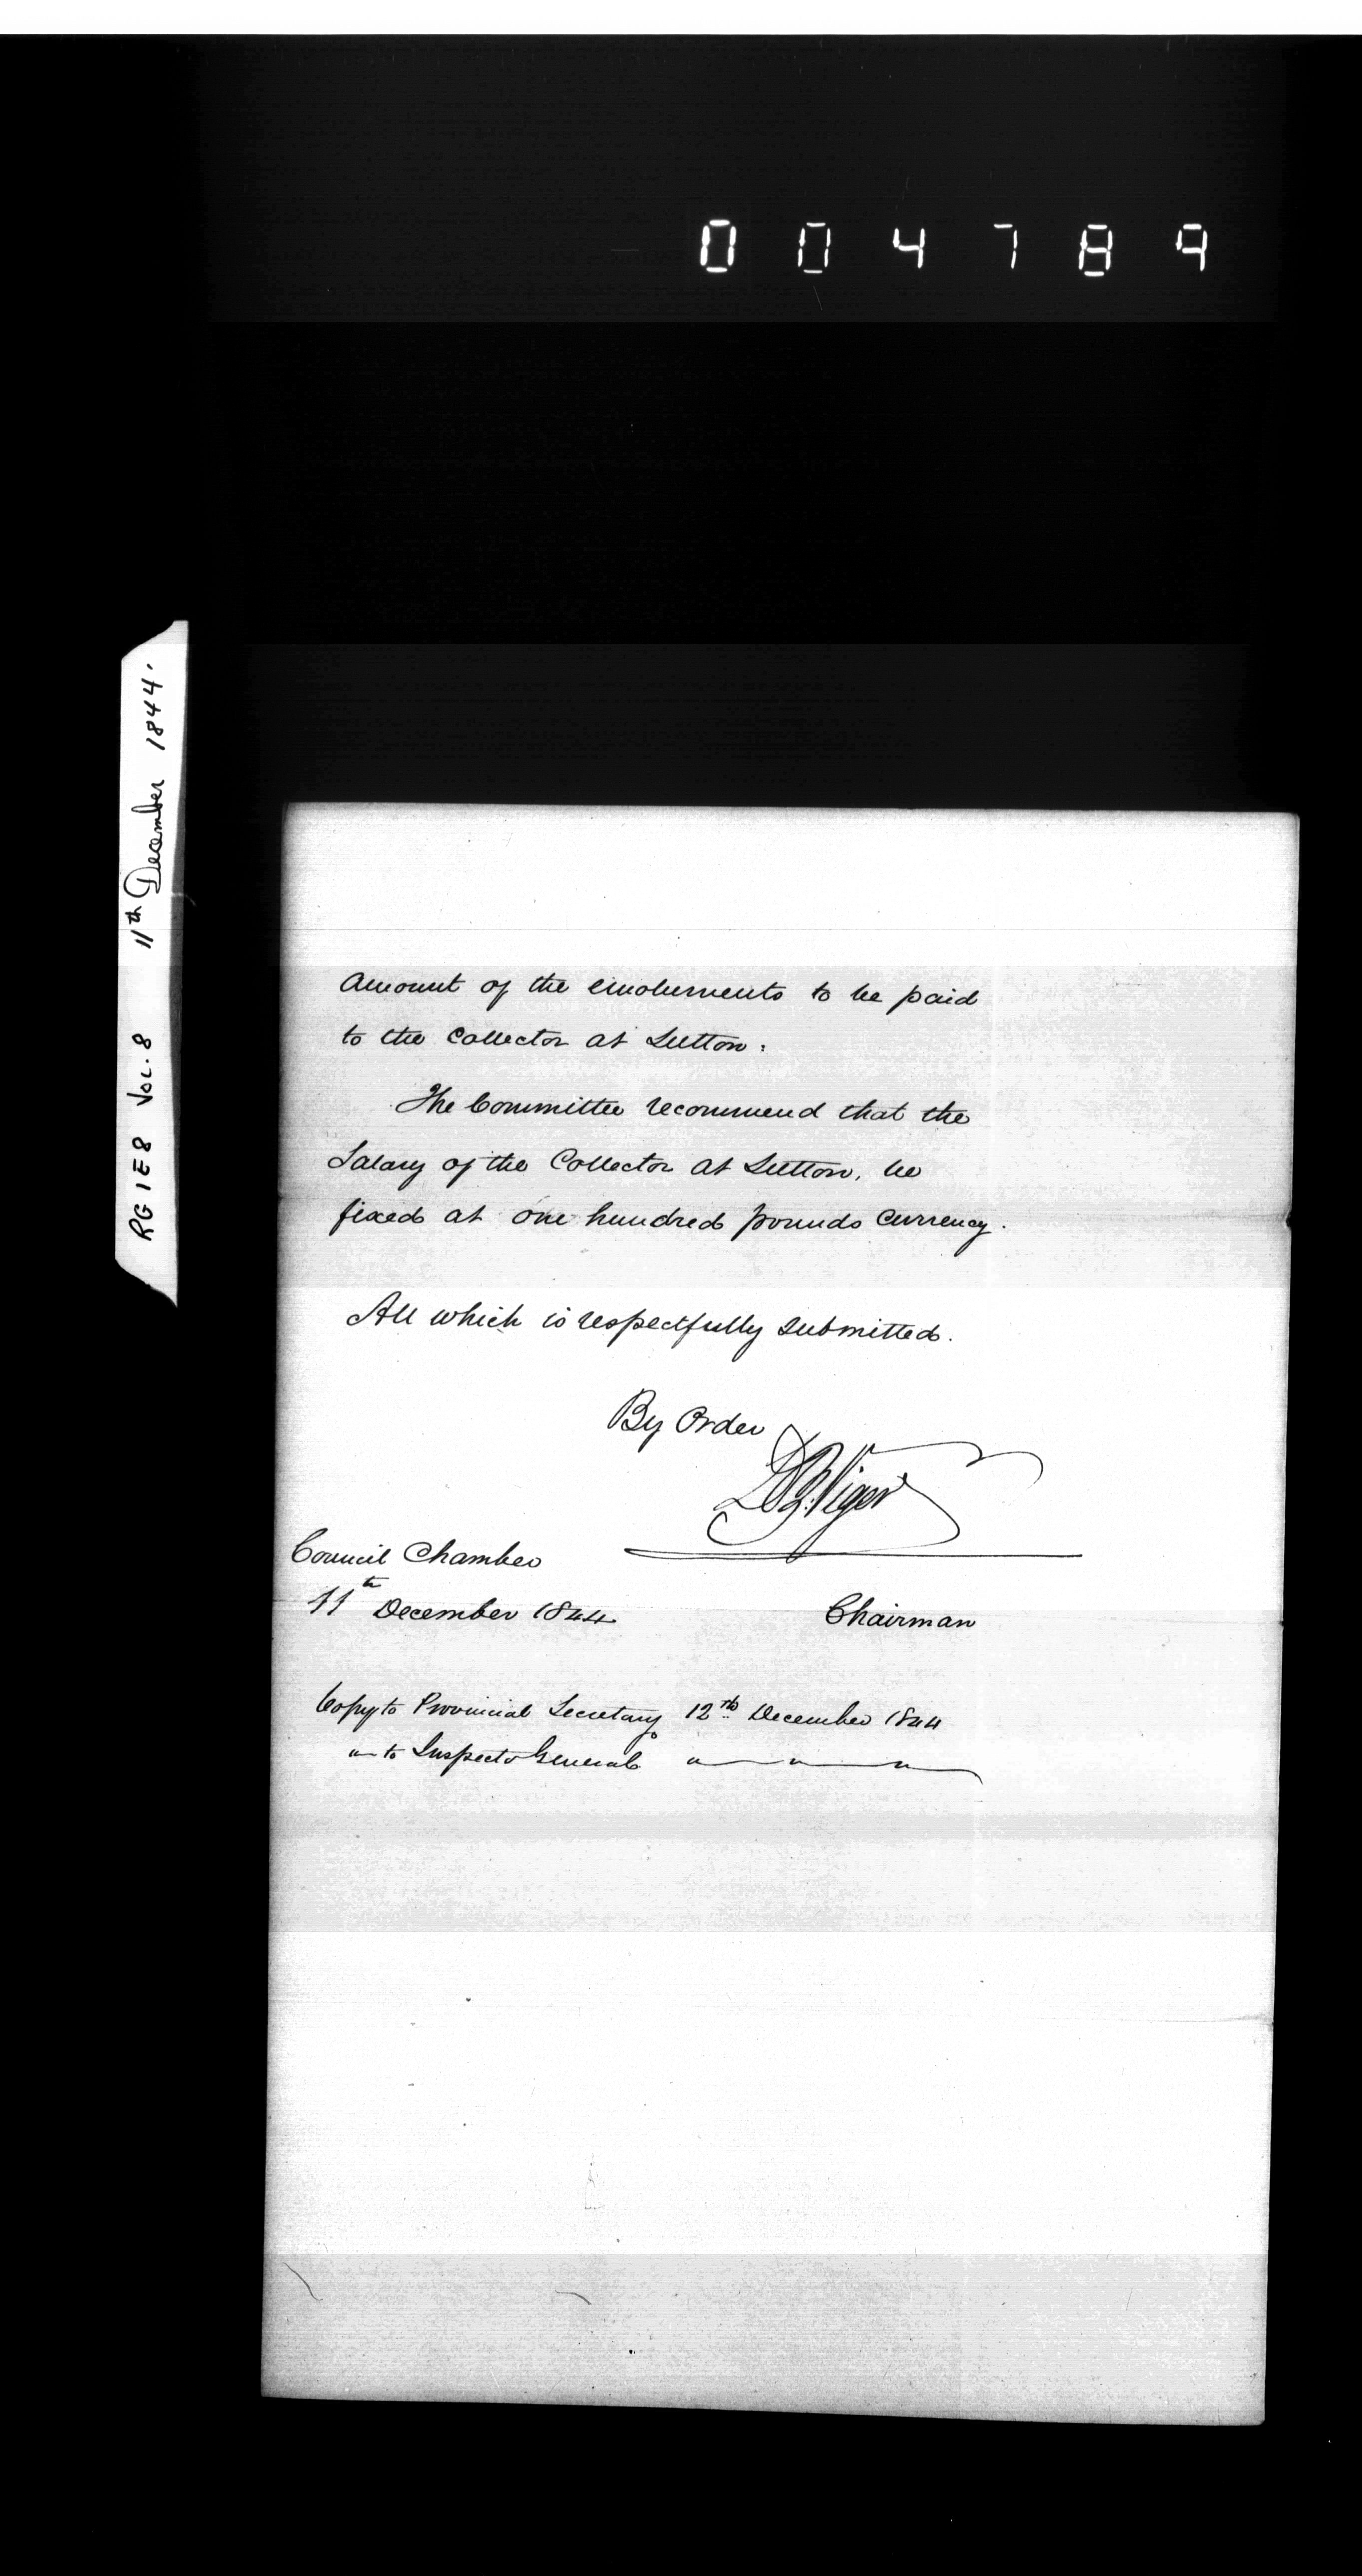 004789
RG1E8 VOL. 8 11th December 1844.
amount of the emoluments to be paid
to the Collector at Sutton.
The Committee recommend that the
Salary of the Collector at Sutton, be
fixed at one hundred pounds Currency.
All which is respectfully submitted.
By Order
D.B. Viger
Council Chamber
11th December 1844
Chairman
Copy to Provincial Secretary 12th December 1844
" to Inspector General " " "